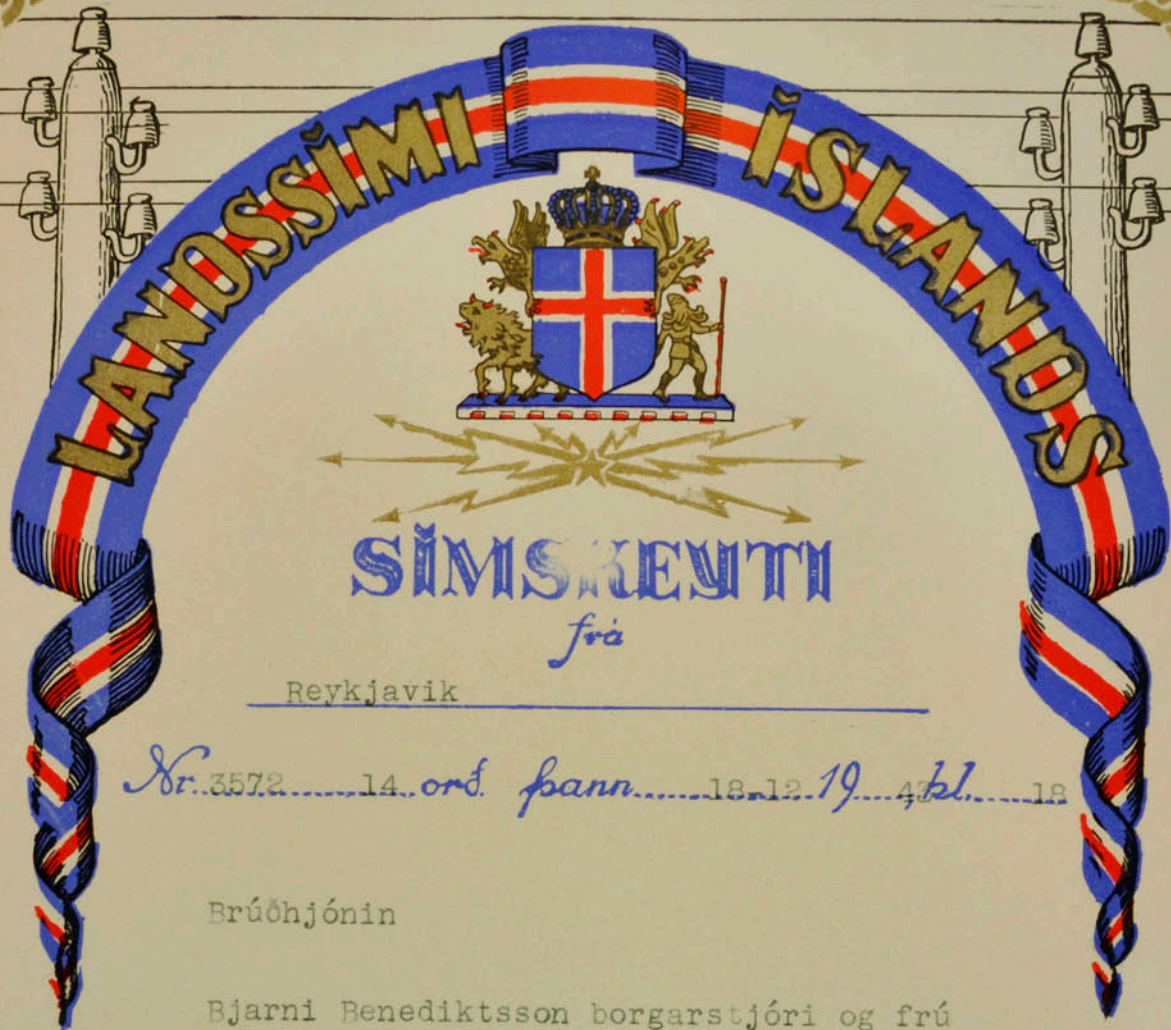 LANDSSÍMI ÍSLANDS
SÍMSKEYTI
frá
Reykjavik
Nr. 3572 14 orð. þann 18-12 19 43 kl. 18
Brúðhjónin
Bjarni Benediktsson borgarstjóri og frú